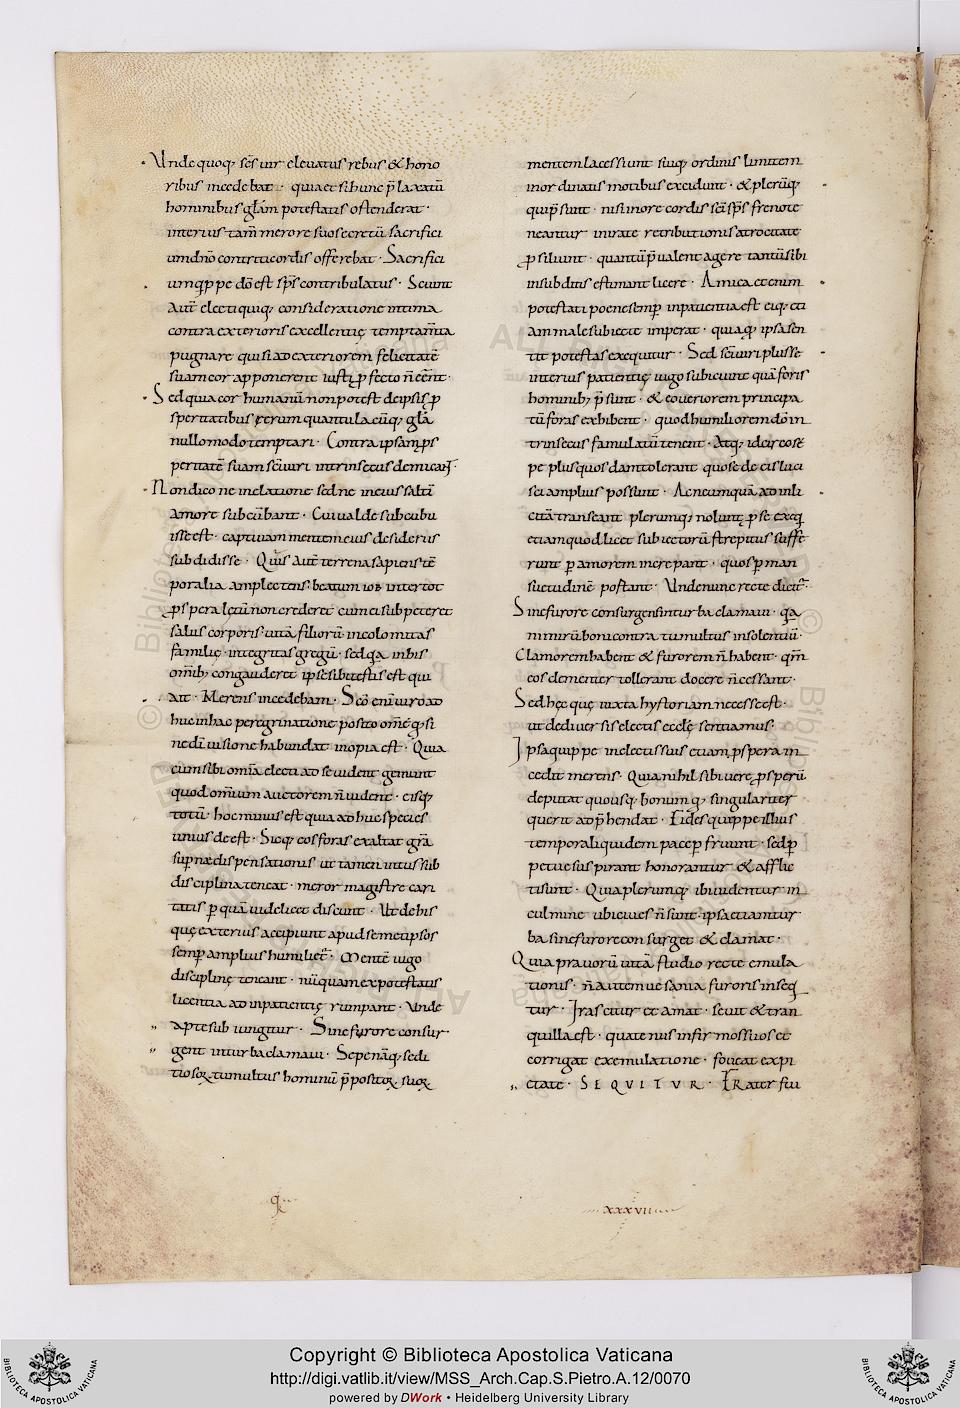 Unde quoq; scs uir eleuatus rebus & hono
ribus incedebat · quia et si hunc p̄ laxatū
hominibus glam potestatis ostenderat ·
interius tam̄ merore suo secretū sacrifici
um dno contriti cordis offerebat · Sacrifici
um q̄ppe dō est sp̄s contribulatus · Sciunt
Aut̄ electi quiq; consideratione intima
contra exterioris excellentię temptam̄ta
pugnare qui si ad exteriorem felicitatē
suam cor apponerent iusti p fecto n̄ ēēnt ·
Sed quia cor humanū non potest de ipsis p
speritatibus rerum quantulacūq; glā
nullo modo temptari · Contra ipsam ps
peritatē suam scī uiri intrinsecus demicant ·
Non dico ne in elatione sed ne in eius saltī
Amore subcūbant · Cui ualde subcubu
isse est · captiuam mentem eius desideriis
subdidisse · Quis aut̄ terrena sapiens tē
poralia amplectens · beatum iob inter tot
pspera lętū non crederet cum ei subpeteret
salus corporis · uita filiorū · incolomitas
familię · integritas gregū · sed qa in his
omib; congauderet ipse sibi testis est qui
ait · Merens incedebam · Scō enī uiro ad
huc in hac peregrinatione posito om̄e q si
ne dī uisione habundat inopia est · Quia
cum sibi omia electi adee uident gemunt
quod omium auctorem n̄ uident · eisq;
totū hoc minus est quia adhuc species
unius deest · Sicq; eos foras exaltat grā
supnæ dispensationis ut tamen intus sub
disciplina teneat · meror magistre cari
tatis p quā uidelicet discunt · Ut de his
quę exterius accipiunt apud semetipsōs
semp amplius humilient̄ · Mentē iugo
disciplinę teneant · nūquam ex potestatis
licentia ad inpatientię rumpant · Unde
,, Apte subiungitur · Sine furore consur·
,, gens in turba clamaui · Sepe naq; sedi
tiosoꝝ tumultus hominū p̄positoꝝ suoꝝ
q
mentem lacessiunt suiq; ordinis limitem
inordinatis motibus excidunt · & pleriq;
qui p̄sunt · nisi in ore cordis scī sp̄s freno te
neantur in irate retributionis atrocitatē
psiliunt · quantū p̄ualent agere tantū sibi
in subditis estimant licere · Amica etenim
potestati poene semp inpatientia est eiq; eti
am male subiecte imperat · quia q ipsa sen
tit potestas exequitur · Sed scī uiri plus se
interius patientię iugo subiciunt quā foris
hominib; p̄sunt · & eo ueriorem principa
tū foras exhibent · quod humiliorem dō in
trinsecus famulatū tenent · Atq; idcirco sē
pe plus quosdam tolerant quo se de eis ulci
sci amplius possunt · Ac ne umquā ad inli
cita transeant plerumq; nolunt p se exeq
etiam quod licet subiectorū strepitus suffe
runt p amorem increpant · quos p man
suetudinē portant · Unde nunc recte dicit̄ ·
Sine furore consurgens in turba clamaui · qa
nimirū boni contra tumultus insolentiū ·
Clamorem habent & furorem n̄ habent · qm̄
eos clementer tollerant docere n̄ cessant ·
Sed hęc quę iuxta hystoriam necesse est ·
ut de diuersis electis ecclę sentiamus ·
Ipsa quippe in electis suis etiam pspera in
cedit merens · Quia nihil sibi uere psperū
deputat quousq; bonum q; singulariter
querit adp̄hendat · Fides quippe illius
temporali quidem pace pfruunt · sed p
petue suspirant honorantur & afflic
ti sunt · Quia plerumq; ibi uidentur in
culmine ubi ciues n̄ sunt · ipsa etiam tur
ba sine furore consurget & clamat ·
Quia prauorū uitā studio recte emula
tionis · n̄ autem uesania furoris inseq
tur · Irascitur et amat · seuit & tran
quilla est · quatenus infirmos suos et
corrigat ex emulatione · foueat ex pi
,, etate · SEQUITUR · FRater fui
xxxvii
Copyright © Biblioteca Apostolica Vaticana
http://digi.vatlib.it/view/MSS_Arch.Cap.S.Pietro.A.12/0070
powered by DWork • Heidelberg University Library